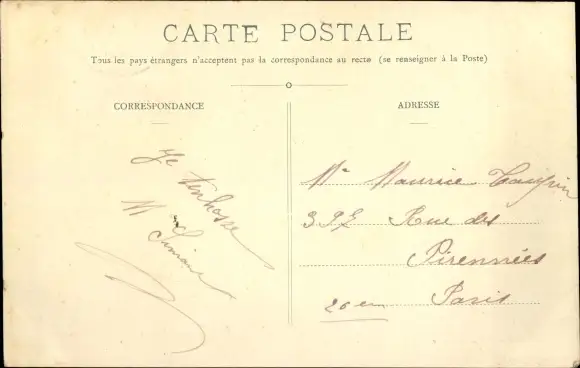 CARTE POSTALE
Tous les pays étrangers n'acceptent pas la correspondance au recto (se renseigner à la Poste)
CORRESPONDANCE
ADRESSE
Je t'enhasse
M Simian
Mr Maurice
397 Rue des
Pirennées
20 em Paris